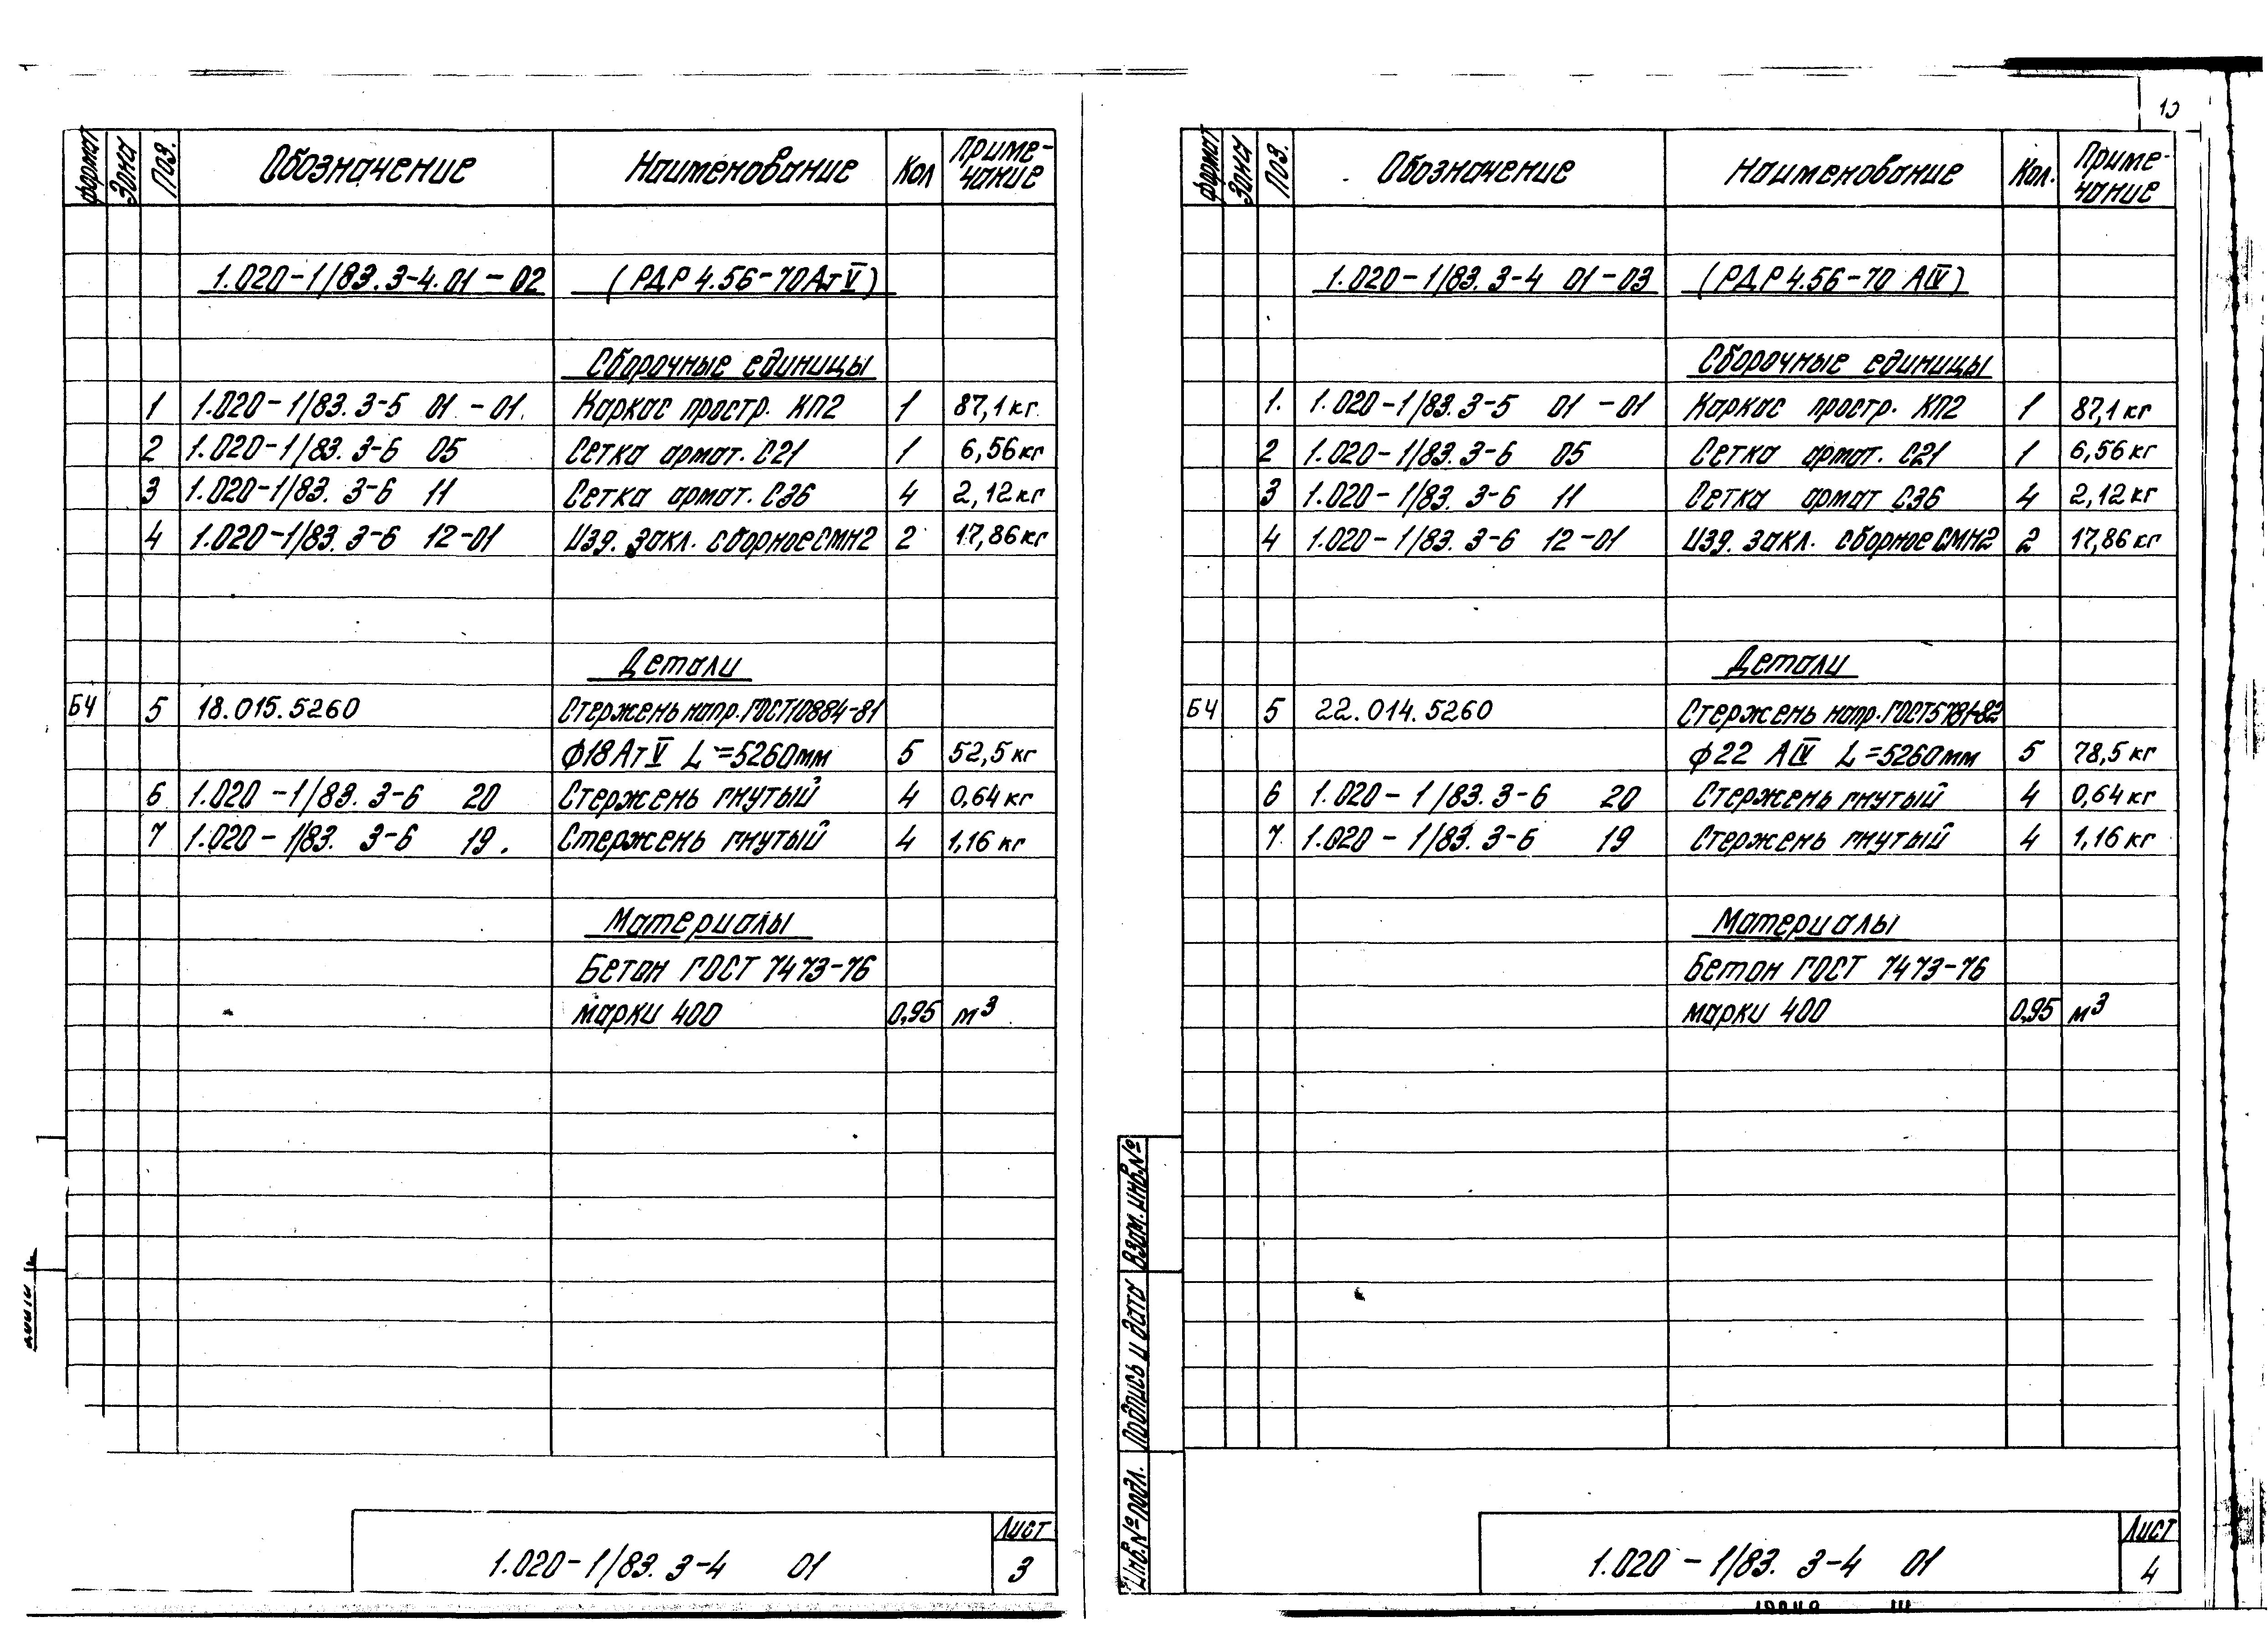 формат Зона Поз. Обозначение Наименование Кол Приме-чание
1.020-1/83.3-4.01-02 (РДР 4.56-70АтV)
Сборочные единицы
1 1.020-1/83.3-5 01-01. Каркас простр. КП2 1 87,1кг.
2 1.020-1/83.3-6 05 Сетка армат. С21 1 6,56кг
3 1.020-1/83. 3-6 11 Сетка армат. С36 4 2,12кг
4 1.020-1/83.3-6 12-01 Изд. закл. сборное СМН2 2 17,86кг
Детали
БЧ 5 18.015.5260 Стержень напр. ГОСТ10884-81
ф18АтV L=5260мм 5 52,5кг
6 1.020-1/83.3-6 20 Стержень гнутый 4 0,64кг
7 1.020-1/83. 3-6 19. Стержень гнутый 4 1,16кг
Материалы
Бетон ГОСТ 7473-76
марки 400 0,95 м3
Лист
1.020-1/83. 3-4 01 3
формат Зона Поз. Обозначение Наименование Кол. Приме-чание
1.020-1/83. 3-4 01-03 (РДР4.56-70 АIV)
Сборочные единицы
1. 1.020-1/83.3-5 01-01 Каркас простр. КП2 1 87,1кг
2 1.020-1/83.3-6 05 Сетка армат. С21 1 6,56кг
3 1.020-1/83. 3-6 11 Сетка армат С36 4 2,12кг
4 1.020-1/83. 3-6 12-01 Изд. закл. сборное СМН2 2 17,86кг
Детали
БЧ 5 22.014.5260 Стержень напр. ГОСТ5781-82
ф22 АIV L=5260мм 5 78,5кг
6 1.020-1/83.3-6 20 Стержень гнутый 4 0,64кг
7 1.020-1/83. 3-6 19 Стержень гнутый 4 1,16кг
Материалы
Бетон ГОСТ 7473-76
марки 400 0,95 м3
Взам. инв. №
Подпись и дата
Инв. № подл.
Лист
1.020-1/83. 3-4 01 4